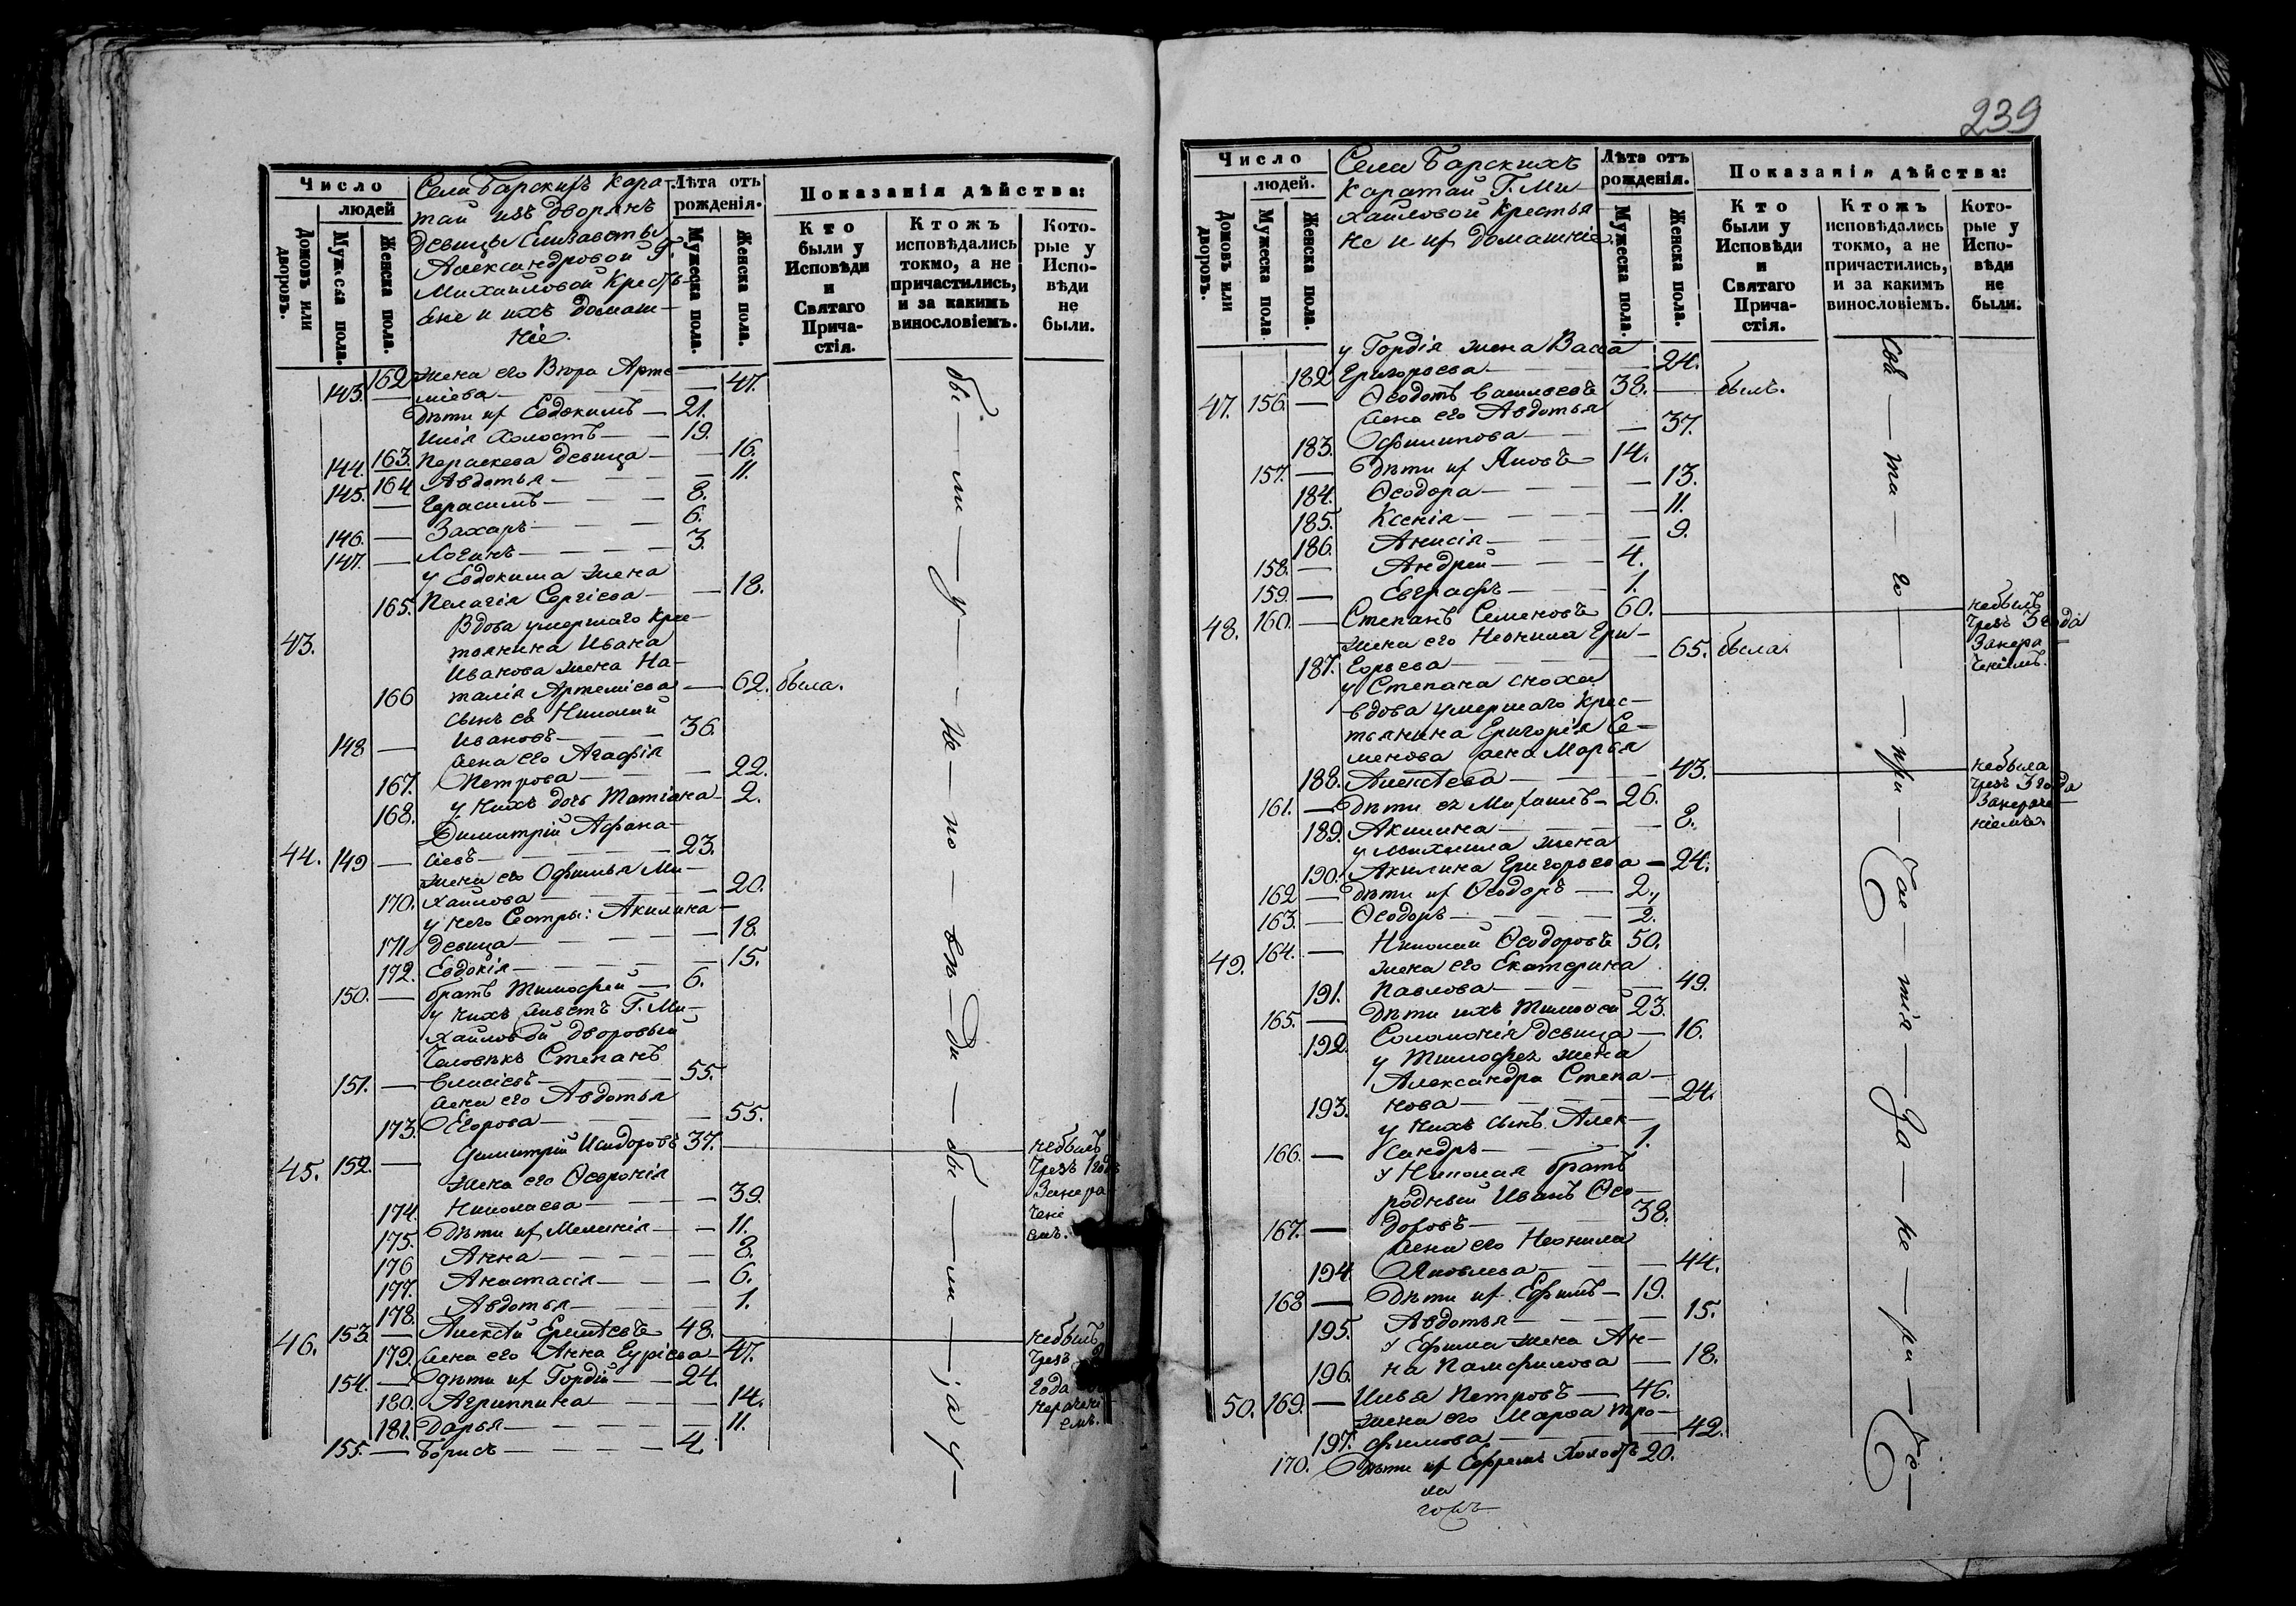 Число
людей
Домовъ или дворовъ.
Мужеска пола.
Женска пола.
Села Барскихъ Кара-
тай изъ дворянъ
Девицы Елизаветы
Александровой Г.
Михайловой Кресть-
яне и ихъ домаш-
ніе.
Лѣта отъ
рожденія.
Мужеска пола.
Женска пола.
Показанія дѣйства:
Кто
были у
Исповѣди
и
Святаго
Прича-
стія.
Ктожъ
исповѣдались
токмо, а не
причастились,
и за какимъ
винословіемъ.
Кото-
рые у
Испо-
вѣди
не
были.
162 жена его Вѣра Арте-
міева — 47.
143. — дѣти их Евдокимъ — 21.
Илія Холостъ — 19.
144. 163. Параскева девица — 16.
145. 164 Авдотья — 11.
— Герасимъ — 8.
146. — Захаръ — 6.
147. — Логинъ — 3.
у Евдокима жена
165. Пелагія Сергіева — 18.
43. Вдова умершаго Крес-
тьянина Ивана
Иванова жена На-
166 талія Артеміева — 62. была.
сынъ ея Николай
148 — Ивановъ — 36.
жена его Агафія
167. Петрова — 22.
168. у нихъ дочь Татіана — 2.
Димитрій Афана-
44. 149 — сіевъ — 23.
жена его Офимья Ми-
170. хайлова — 20.
у него Сестры: Акилина
171 девица — 18.
172. Евдокія — 15.
150. — братъ Тимофей — 6.
у нихъ живетъ Г. Ми-
хайловой дворовый
Человѣкъ Степанъ
151. — Власіевъ — 55.
жена его Авдотья
173. Егорова — 55.
45. 152. — Димитрій Исидоровъ 37. — небылъ
чрезъ 1 годъ
Занера-
чені
емъ.
жена его Феѳронія
174. Николаева — 39.
175. Дѣти их Меланія — 11.
176 Анна — 8.
177. Анастасія — 6.
178. Авдотья — 1.
46. 153 — Алексѣй Ермѣевъ 48. — небылъ
чрезъ 2
года
нерачені
емъ.
179. жена его Анна Гуріева — 47.
154. — дѣти их Гордій — 24.
180. Агриппина — 14.
181. Дарья — 11.
155. — Борисъ — 4.
бы — ли — у — не — по — вѣ — ди — бы — ли — ; а у —
239
Число
людей.
Домовъ или дворовъ.
Мужеска пола
Женска пола.
Села Барскихъ
Каратай Г. Ми-
хайловой Крестья
не и их домашніе
Лѣта отъ
рожденія.
Мужеска пола.
Женска пола.
Показанія дѣйства:
Кто
были у
Исповѣди
и
Святаго
Прича-
стія.
Ктожъ
исповѣдались
токмо, а не
причастились,
и за какимъ
винословіемъ.
Кото-
рые у
Испо-
вѣди
не
были.
у Гордія жена Васса
182 Григорьева — 24.
47. 156. — Ѳеодотъ Васильевъ 38. — былъ.
жена его Авдотья
183. Филипова — 37.
157. — Дѣти их Яковъ 14.
184. Ѳеодора — 13.
185. Ксенія — 11.
186. Анисія — 9.
158. — Андрей — 4.
159. — Евграфъ — 1.
48. 160. — Степанъ Семеновъ 60. — небылъ
чрезъ 3 года
Занера-
ченіемъ.
жена его Неонила Гри-
187. горьева — 65. была.
у Степана сноха
вдова умершаго Крес-
тьянина Григорія Се-
менова жена Марья
188. Алексѣева — 43. — небыла
чрезъ 3 года
Занераче-
ніемъ.
161. — Дѣти ея Михаилъ — 26.
189. Акилина — 8.
у Михаила жена
190. Акилина Григорьева — 24.
162 — дѣти их Ѳеодоръ — 2.
163. — Ѳеодоръ — 2.
49. 164. — Николай Ѳеодоровъ 50.
жена его Екатерина
191. Павлова — 49.
165. — Дѣти ихъ Тимофей 23.
192. Соломонія девица — 16.
у Тимофея жена
Александра Степа-
193. нова — 24.
у нихъ сынъ Алек-
166. — сандръ — 1.
у Николая братъ
родный Иванъ Ѳео-
167. — доровъ — 38.
жена его Неонила
194 Яковлева — 44.
168 — Дѣти их Ефимъ — 19.
195. Авдотья — 15.
у Ефима жена Ан-
196. на Памфилова — 18.
50. 169. — Илья Петровъ — 46.
жена его Марѳа Тро-
197. фимова — 42.
170. Дѣти их Ефремъ Холостъ 20.
Свя — та — го — при — ча — тія — За — не — ра — че —